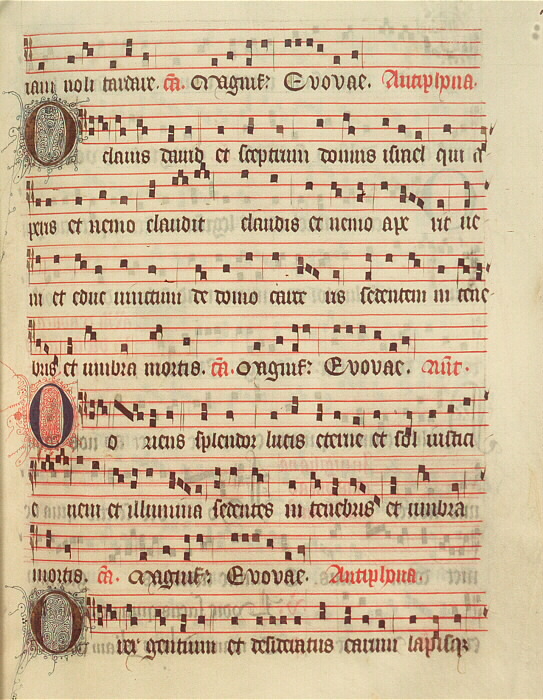 iam noli tardare. ca. Magnif. Evovae. Antiphona.
O clauis dauid et sceptrum domus israel qui a
peris et nemo claudit claudis et nemo ape rit ue
ni et educ uinctum de domo carce ris sedentem in tene-
bris et umbra mortis. ca. Magnif. Evovae. Ant.
O o riens splendor lucis eterne et sol iustici
e ueni et illumina sedentes in tenebris et umbra
mortis. ca. Magnif. Evovae. Antiphona.
O rex gentium et desideratus earum lapisque